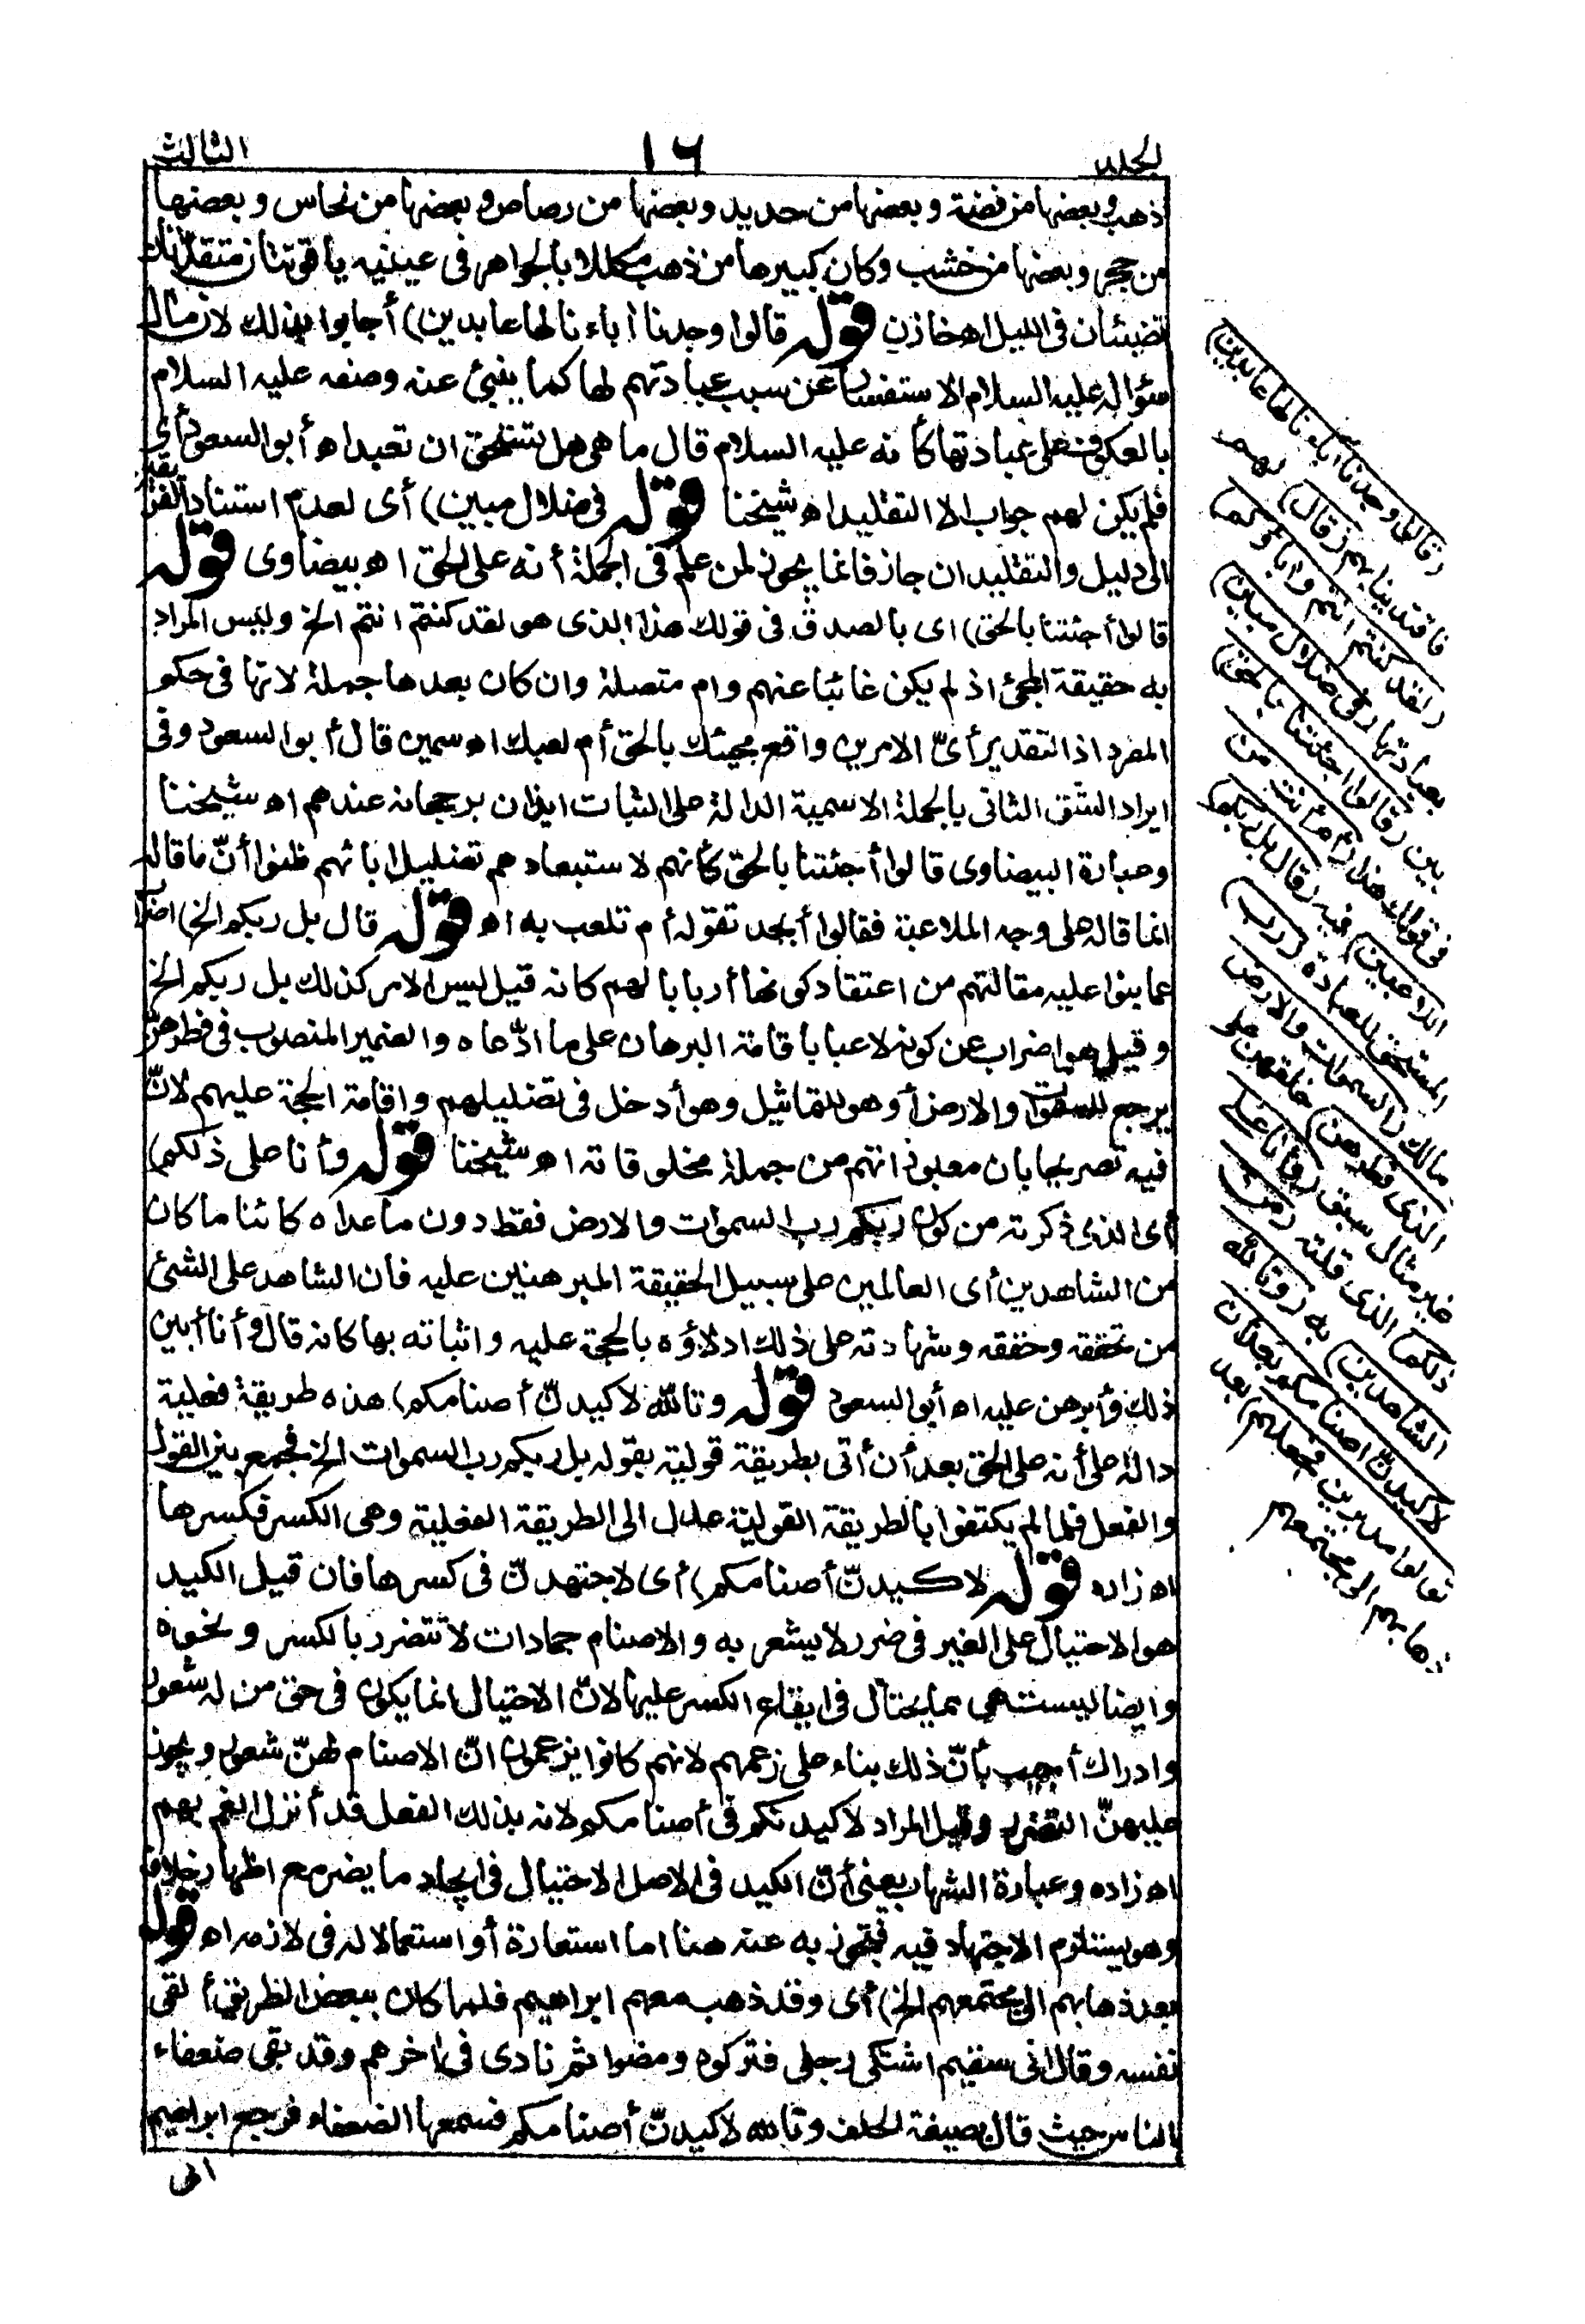 المجلد
١٦
الثالث
ذهب وبعضها من فضة وبعضها من حديد وبعضها من رصاص وبعضها من نحاس وبعضها
من حجر وبعضها من خشب وكان كبيرها من ذهب مكللا بالجواهر في عينيه ياقوتتان متقدتان
تضيئان في الليل اه خازن قوله قالوا وجدنا أباءنا لها عابدين) أجابوا بذلك لان مآل
سؤاله عليه السلام الاستفسار عن سبب عبادتهم لها كما ينبئ عنه وصفه عليه السلام
بالعكوف على عبادتها كأنه عليه السلام قال ما هي هل تستحق ان تعبد اه أبو السعود أي
فلم يكن لهم جواب الا التقليد اه شيخنا قوله في ضلال مبين) أى لعدم استناد الفريقين
الى دليل والتقليد ان جاز فانما يجوز لمن علم فى الجملة أنه على الحق اه بيضاوى قوله
قالوا أجئتنا بالحق) اى بالصدق فى قولك هذا الذى هو لقد كنتم انتم الخ وليس المراد
به حقيقة المجئ اذ لم يكن غائبا عنهم وام متصلة وان كان بعدها جملة لانها فى حكم
المفرد اذ التقدير أىّ الامرين واقع مجيئك بالحق أم لعبك اه سمين قال أبو السعود وفى
ايراد الشق الثانى بالجملة الاسمية الدالة على الثبات ايذان برجحانه عندهم اه شيخنا
وعبارة البيضاوى قالوا أجئتنا بالحق كأنهم لاستبعادهم تضليل ابائهم ظنوا أنّ ما قاله
انما قاله على وجه الملاعبة فقالوا أبجد تقوله أم تلعب به اه قوله قال بل ربكم الخ) اضراب
عما بنوا عليه مقالتهم من اعتقاد كونها أربابا لهم كانه قيل ليس الامر كذلك بل ربكم الخ
وقيل هو اضراب عن كونه لاعبا باقامة البرهان على ما ادّعاه والضمير المنصوب فى فطرهنّ
يرجع للسموات والارض أو هو للتماثيل وهو أدخل فى تضليلهم واقامة الحجة عليهم لانّ
فيه تصريحا بان معبوداتهم من جملة مخلوقاته اه شيخنا قوله وأنا على ذلكم)
أى الذى ذكرته من كون ربكم رب السموات والارض فقط دون ما عداه كائنا ما كان
من الشاهدين أى العالمين على سبيل الحقيقة المبرهنين عليه فان الشاهد على الشئ
من تحققه وحققه وشهادته على ذلك ادلاؤه بالحجة عليه واثباته بها كانه قال وأنا أبين
ذلك وأبرهن عليه اه أبو السعود قوله وتالله لاكيدنّ أصنامكم) هذه طريقة فعلية
دالة على أنه على الحق بعد أن أتى بطريقة قولية بقوله بل ربكم رب السموات الخ فجمع بين القول
والفعل فلما لم يكتفوا بالطريقة القولية عدل الى الطريقة الفعلية وهى الكسر فكسرها
اه زاده قوله لاكيدنّ أصنامكم) أى لاجتهدنّ فى كسرها فان قيل الكيد
هو الاحتيال على الغير فى ضرر لا يشعر به والاصنام جمادات لا تتضرر بالكسر ونحوه
وايضا ليست هى مما يحتال فى ايقاع الكسر عليها لانّ الاحتيال انما يكون فى حق من له شعور
وادراك أجيب بأنّ ذلك بناء على زعمهم لانهم كانوا يزعمون انّ الاصنام لهنّ شعور ويجوز
عليهنّ التضرر وقيل المراد لاكيدنكم فى أصنامكم لانه بذلك الفعل قد أنزل الغم بهم
اه زاده وعبارة الشهاب يعنى أنّ الكيد فى الاصل الاحتيال فى ايجاد ما يضر مع اظهار خلافه
وهو يستلزم الاجتهاد فيه فتجوز به عنه هنا اما استعارة أو استعمالا له فى لازمه اه قوله
بعد ذهابهم الى مجتمعهم الخ) أى وقد ذهب معهم ابراهيم فلما كان ببعض الطريق ألقى
نفسه وقال انى سقيم اشتكى رجلى فتركوه ومضوا ثم نادى فى اخرهم وقد بقى ضعفاء
الناس حيث قال بصيغة الحلف وتالله لاكيدنّ أصنامكم فسمعها الضعفاء فرجع ابراهيم
الى
(قالوا وجدنا أباءنا لها عابدين)
فاقتدينا بهم (قال) لهم
(لقد كنتم انتم وأباؤكم)
بعبادتها (فى ضلال مبين)
بين (قالوا اجئتنا بالحق)
فى قولك هذا (أم أنت من
اللاعبين) فيه (قال بل ربكم)
المستحق للعبادة (رب)
مالك (السموات والارض
الذى فطرهن) خلقهن على
غير مثال سبق (وأنا على
ذلكم) الذى قلته (من
الشاهدين) به (وتالله
لاكيدنّ اصنامكم بعد أن
تولوا مدبرين) بعد
ذهابهم الى مجتمعهم